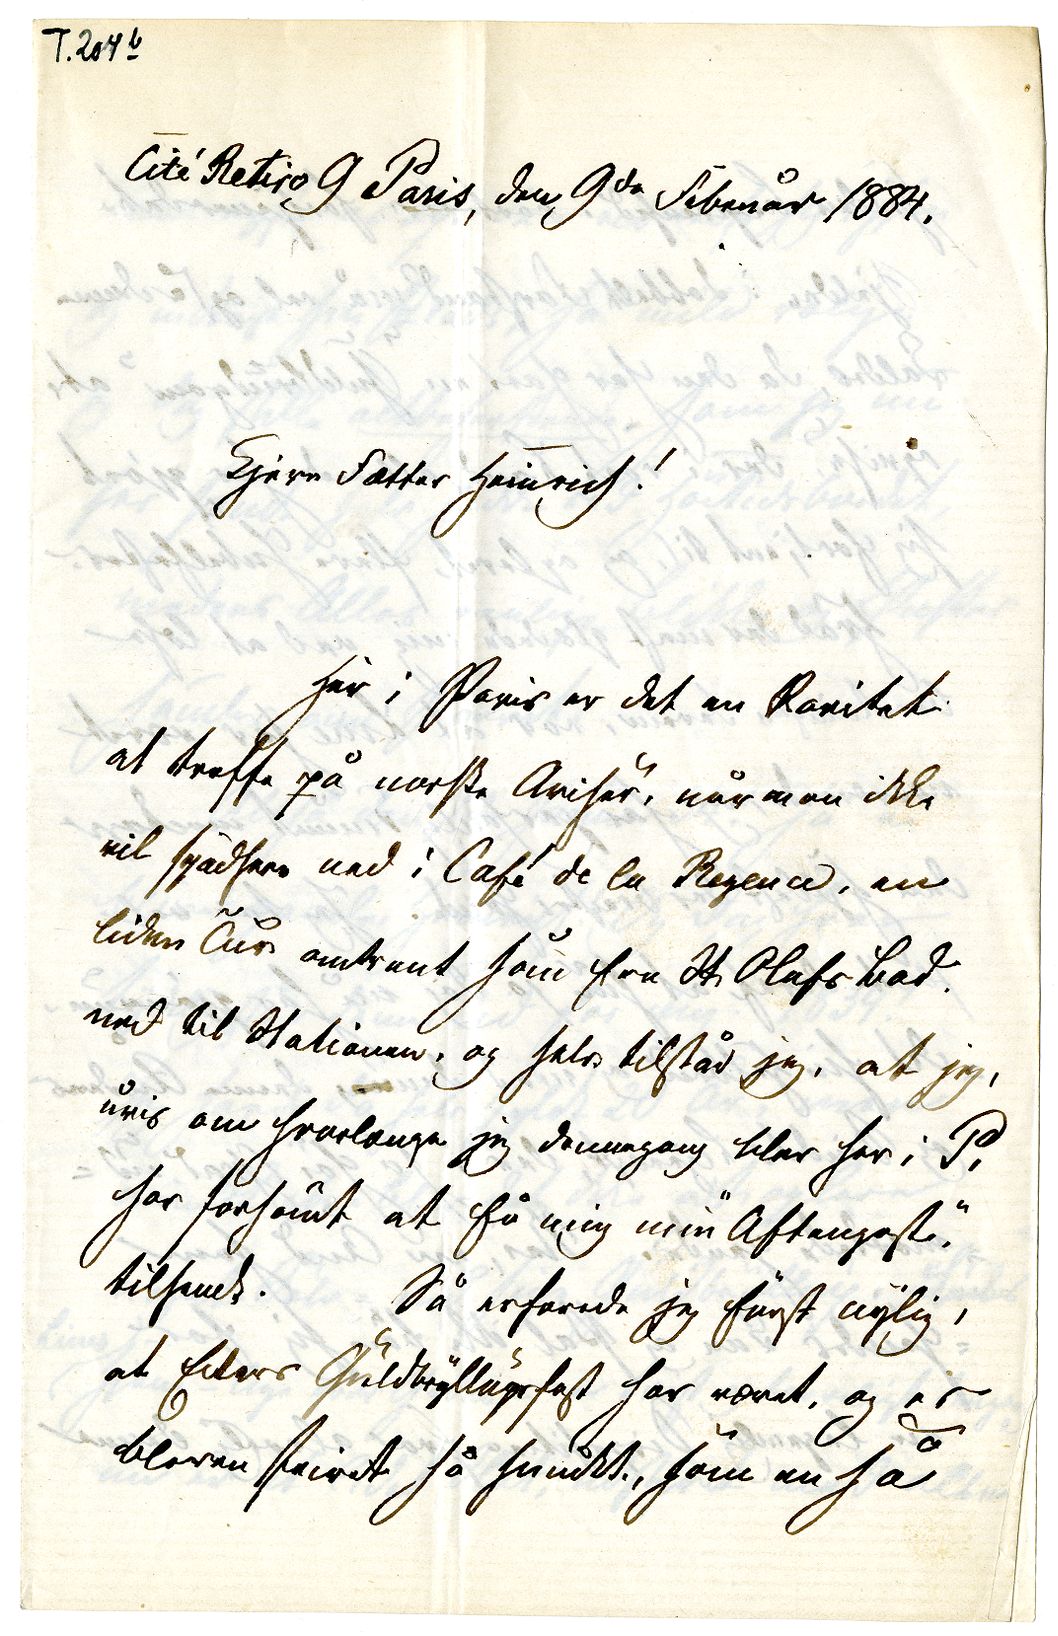 T. 204 b
Cité Retiro 9 Paris, den 9de Februar 1884.
Kjere Fætter Heinrich!
Her i Paris er det en Raritet
at treffe på norske Aviser, når man ikke
vil spadsere ned i Café de la Regence, en
liden Tur omtrent som fra St. Olafs Bad
ned til Stationen, og selv tilstår jeg, at jeg,
uvis om hvorlænge jeg dennegang bler her i P.
har forsømt at få mig min "Aftenpost"
tilsendt. Så erfarede jeg først nylig,
at Eders Guldbryllupsfest har været, og er
bleven feiret så smukt, som en så